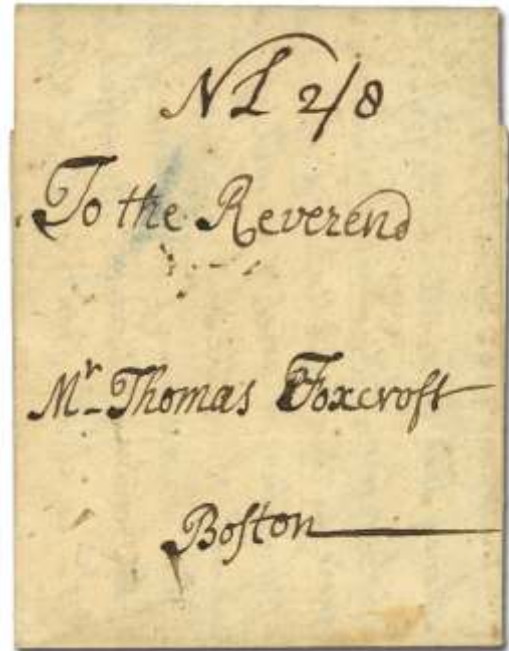 NL 2/8
To the Reverend
Mr Thomas Foxcroft
Boſton